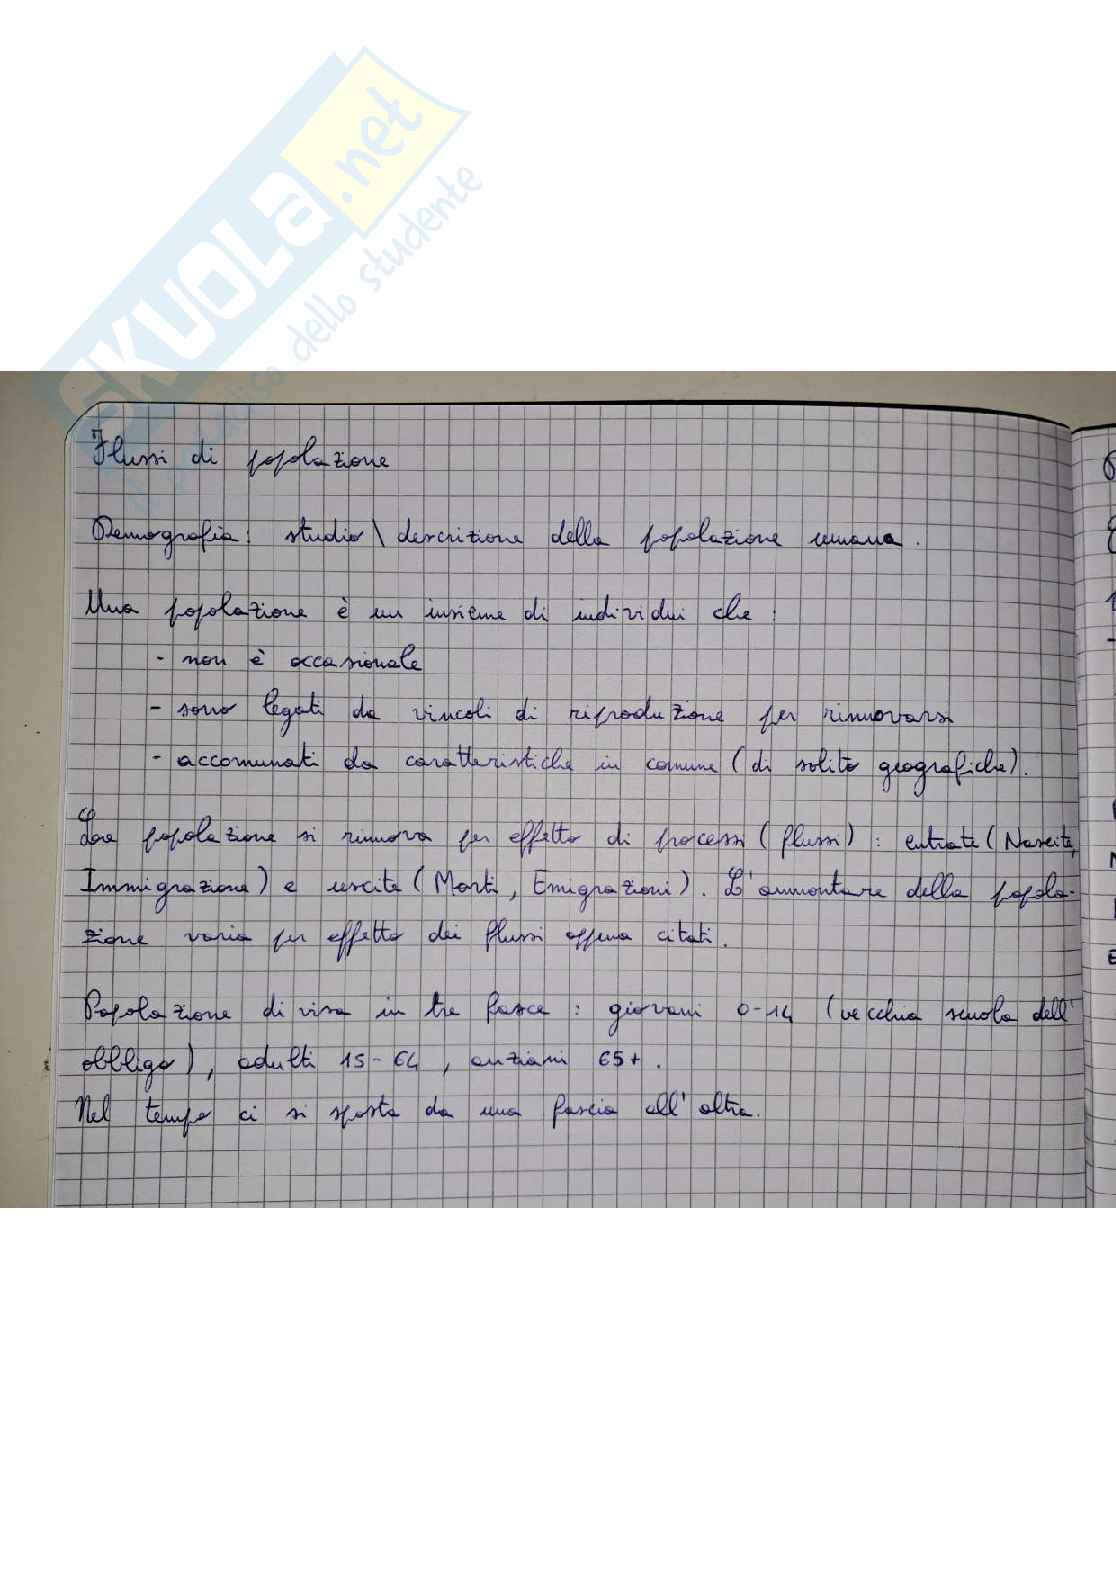 SKUOLA.net
dello studente
Flussi di popolazione
Demografia: studio\descrizione della popolazione umana.
Una popolazione è un insieme di individui che:
- non è occasionale
- sono legati da vincoli di riproduzione per rinnovarsi
- accomunati da caratteristiche in comune (di solito geografiche).
La popolazione si rinnova per effetto di processi (flussi): entrate (Nascite,
Immigrazione) e uscite (Morti, Emigrazioni). L'ammontare della popola-
zione varia per effetto dei flussi appena citati.
Popolazione divisa in tre fasce: giovani 0-14 (vecchia scuola dell'
obbligo), adulti 15-64, anziani 65+.
Nel tempo ci si sposta da una fascia all'altra.